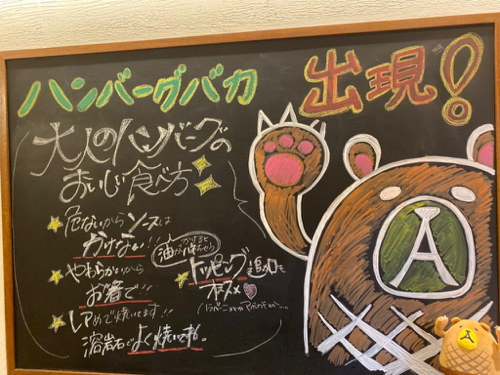 ハンバーグバカ 出現!
大人のハンバーグの
おいしい食べ方
危ないから ソースは
かけない!!
やわらかいから
お箸で!!
レアめで焼いてます!!
溶岩石でよく焼いてね。
トッピング追加も
オススメ
A